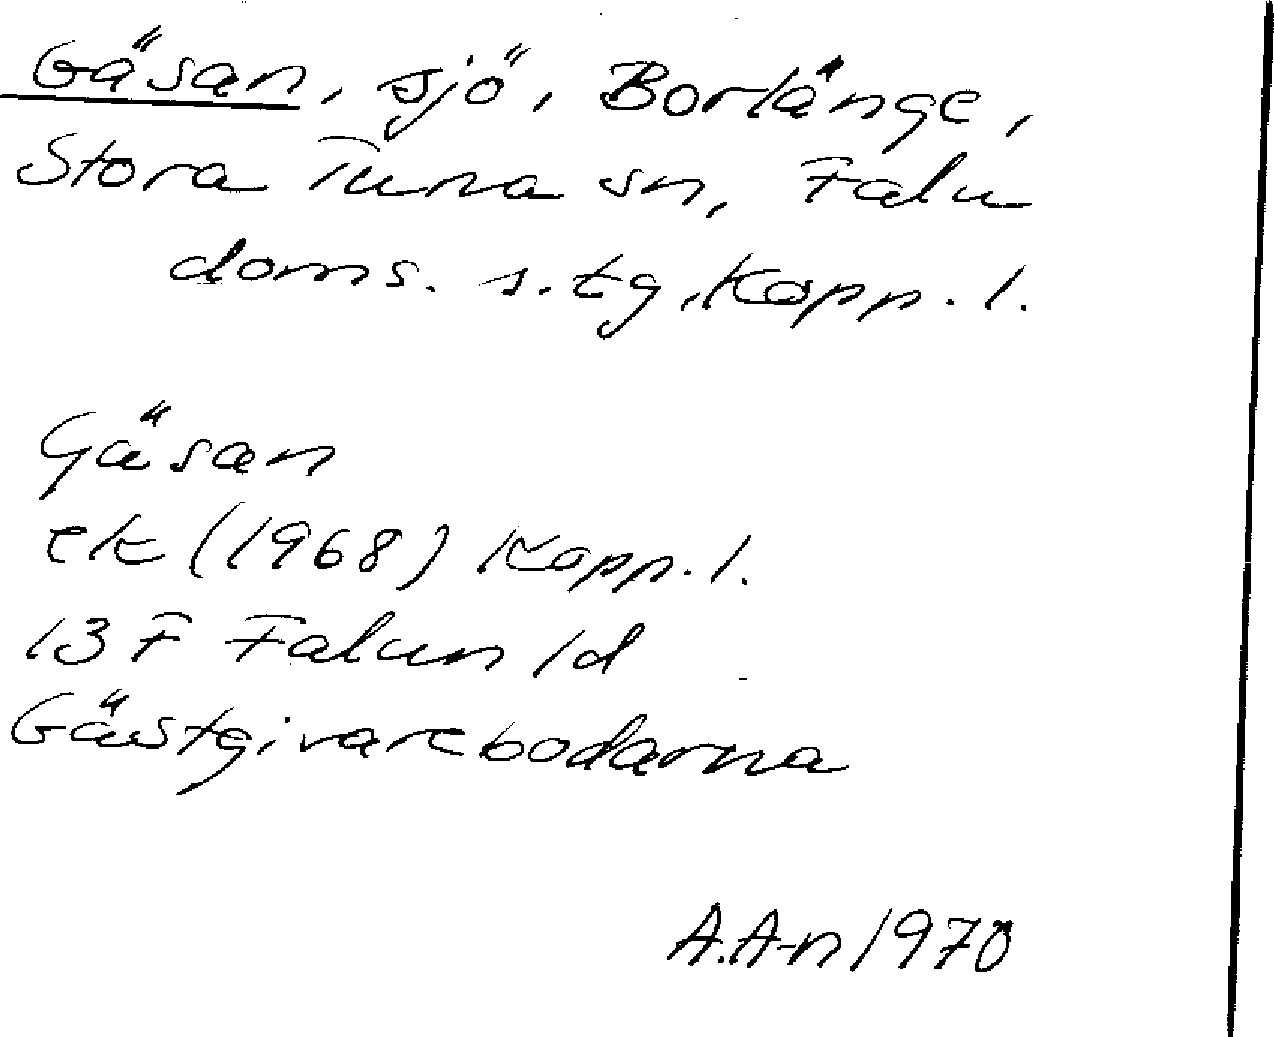 Gäsan, sjö, Borlänge,
Stora Tuna sn, Falu
doms. s. tg, Kopp. l.
Gäsan
ek (1968) Kopp. l.
13 F Falun 1d
Gästgivarebodarna
A.A-n 1970